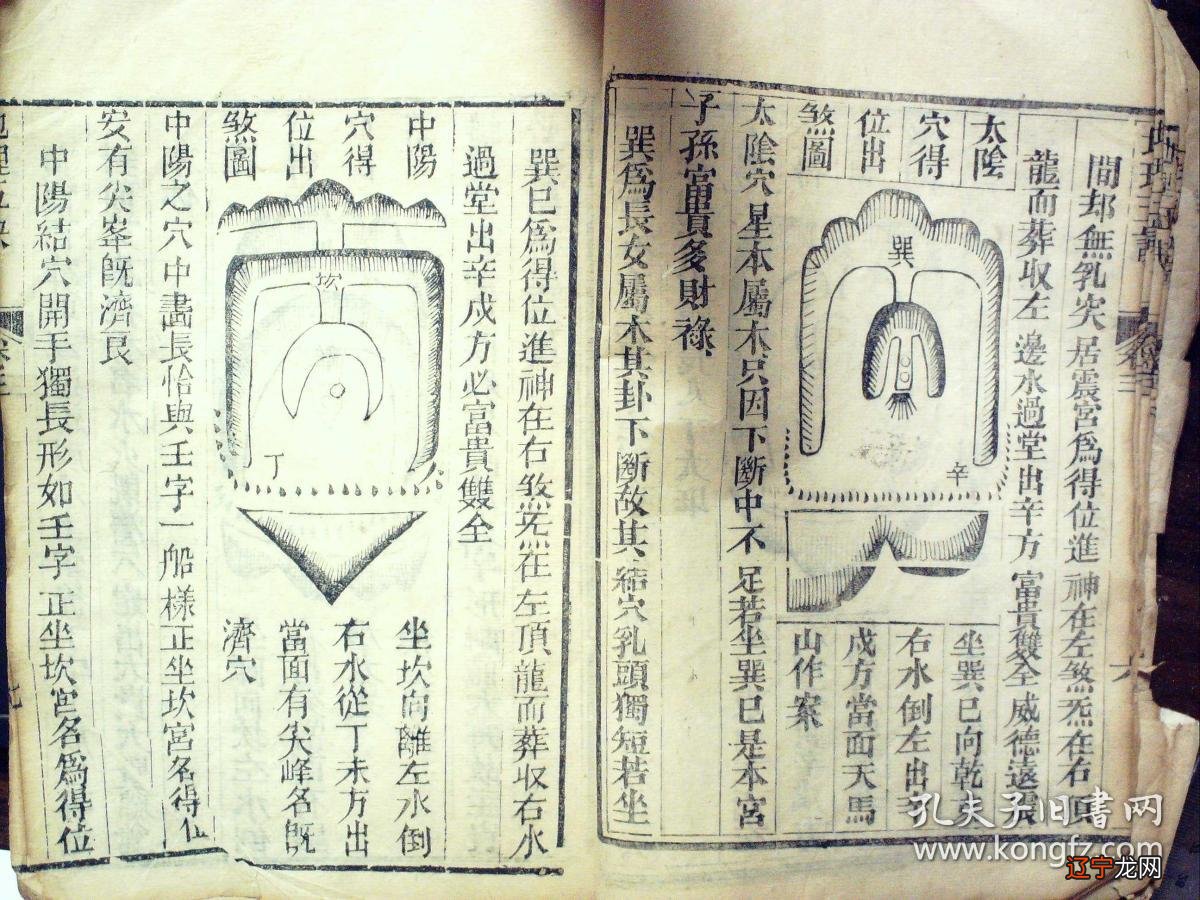 間却無乳突居震宮爲得位進神在左煞炁在右頂
龍而葬收左邊水過堂出辛方富貴雙全威德遠震
太陰
穴得
位出
煞圖
巽
辛
坐巽巳向乾亥
右水倒左出辛
戍方當面天馬
山作案
太陰穴星本屬木只因下斷中不足若坐巽巳是本宮
子孫富貴多財祿
巽爲長女屬木其卦下斷故其結穴乳頭獨短若坐
巽巳爲得位進神在右煞炁在左頂龍而葬收右水
過堂出辛戍方必富貴雙全
中陽
穴得
位出
煞圖
坎
丁
坐坎向離左水倒
右水從丁未方出
當面有尖峰名旣
濟穴
中陽之穴中畫長恰與壬字一船樣正坐坎宮名得位
安有尖峯旣濟艮
中陽結穴開干獨長形如壬字正坐坎宮名爲得位
地理五訣
七
孔夫子旧書网
www.kongfz.com
辽宁龙网